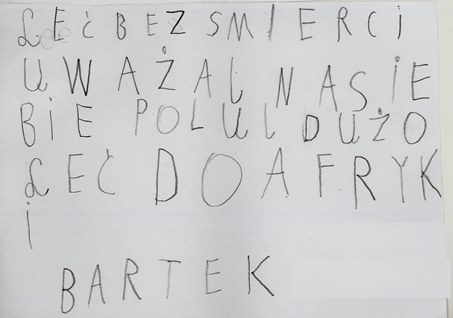 LEĆ BEZ SMIERCI
UWAŻAJ NA SIE
BIE POLUJ DUŻO
LEĆ DO AFRYK
I
BARTEK